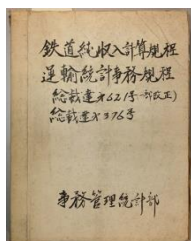 鉄道純収入計算規程
運輸統計事務規程
総裁達才621号一部改正)
総裁達才376号
事務管理統計部